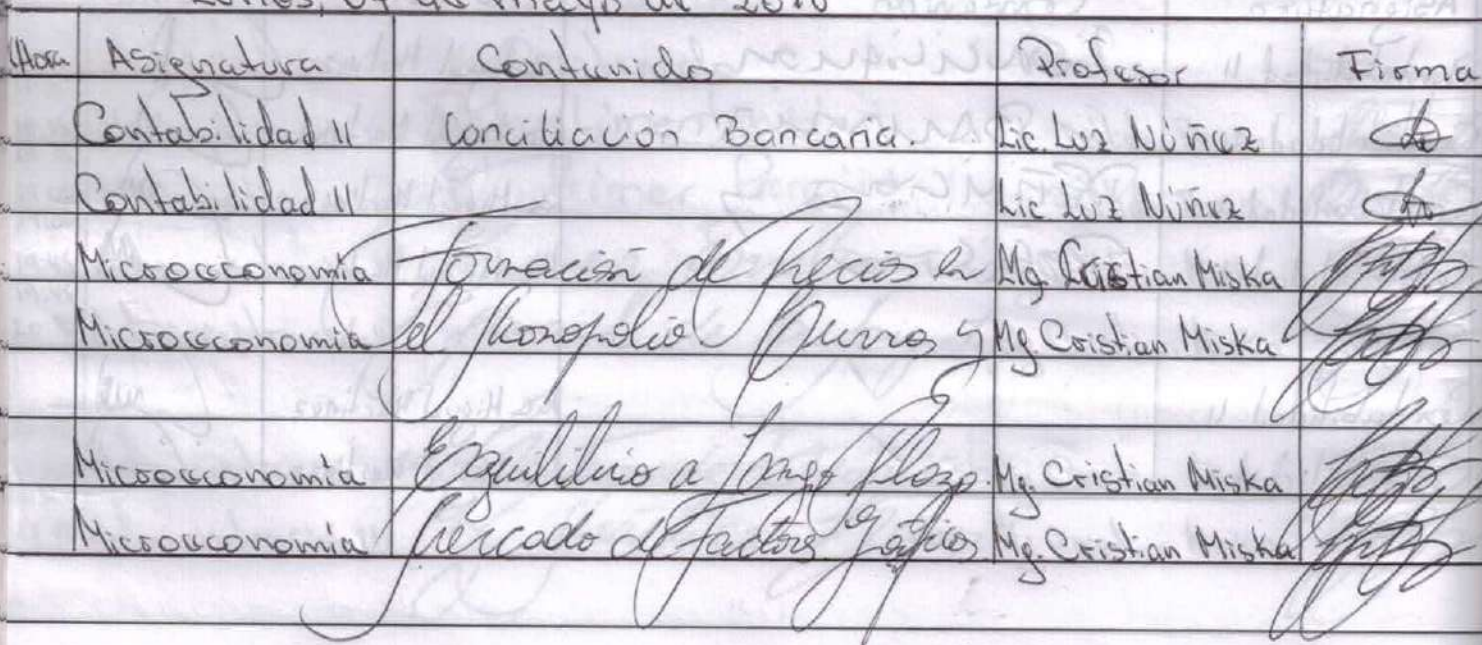 de mayo de
Hora Asignatura Contenido Profesor Firma
Contabilidad II Conciliación Bancaria. Lic. Luz Núñez
Contabilidad II Lic Luz Núñez
Microeconomía Formación de Precios en Mg. Cristian Miska
Microeconomía el Monopolio Mg. Cristian Miska
Microeconomía Equilibrio a Largo Plazo. Mg. Cristian Miska
Microeconomía Mercado de Factores Mg. Cristian Miska